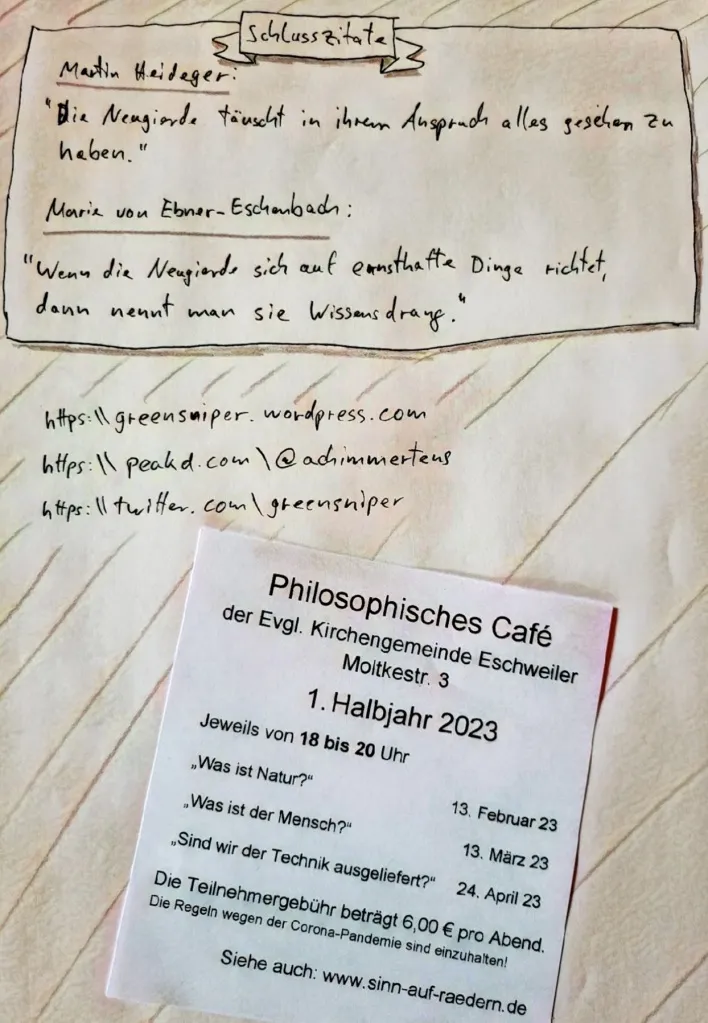 Schlusszitate
Martin Heideger:
"Die Neugierde täuscht in ihrem Anspruch alles gesehen zu
haben."
Marie von Ebner-Eschenbach:
"Wenn die Neugierde sich auf ernsthafte Dinge richtet,
dann nennt man sie Wissensdrang."
https:\\greensniper.wordpress.com
https:\\peakd.com\@achimmertens
https:\\twitter.com\greensniper
Philosophisches Café
der Evgl. Kirchengemeinde Eschweiler
Moltkestr. 3
1. Halbjahr 2023
Jeweils von 18 bis 20 Uhr
„Was ist Natur?“ 13. Februar 23
„Was ist der Mensch?“ 13. März 23
„Sind wir der Technik ausgeliefert?“ 24. April 23
Die Teilnehmergebühr beträgt 6,00 € pro Abend.
Die Regeln wegen der Corona-Pandemie sind einzuhalten!
Siehe auch: www.sinn-auf-raedern.de